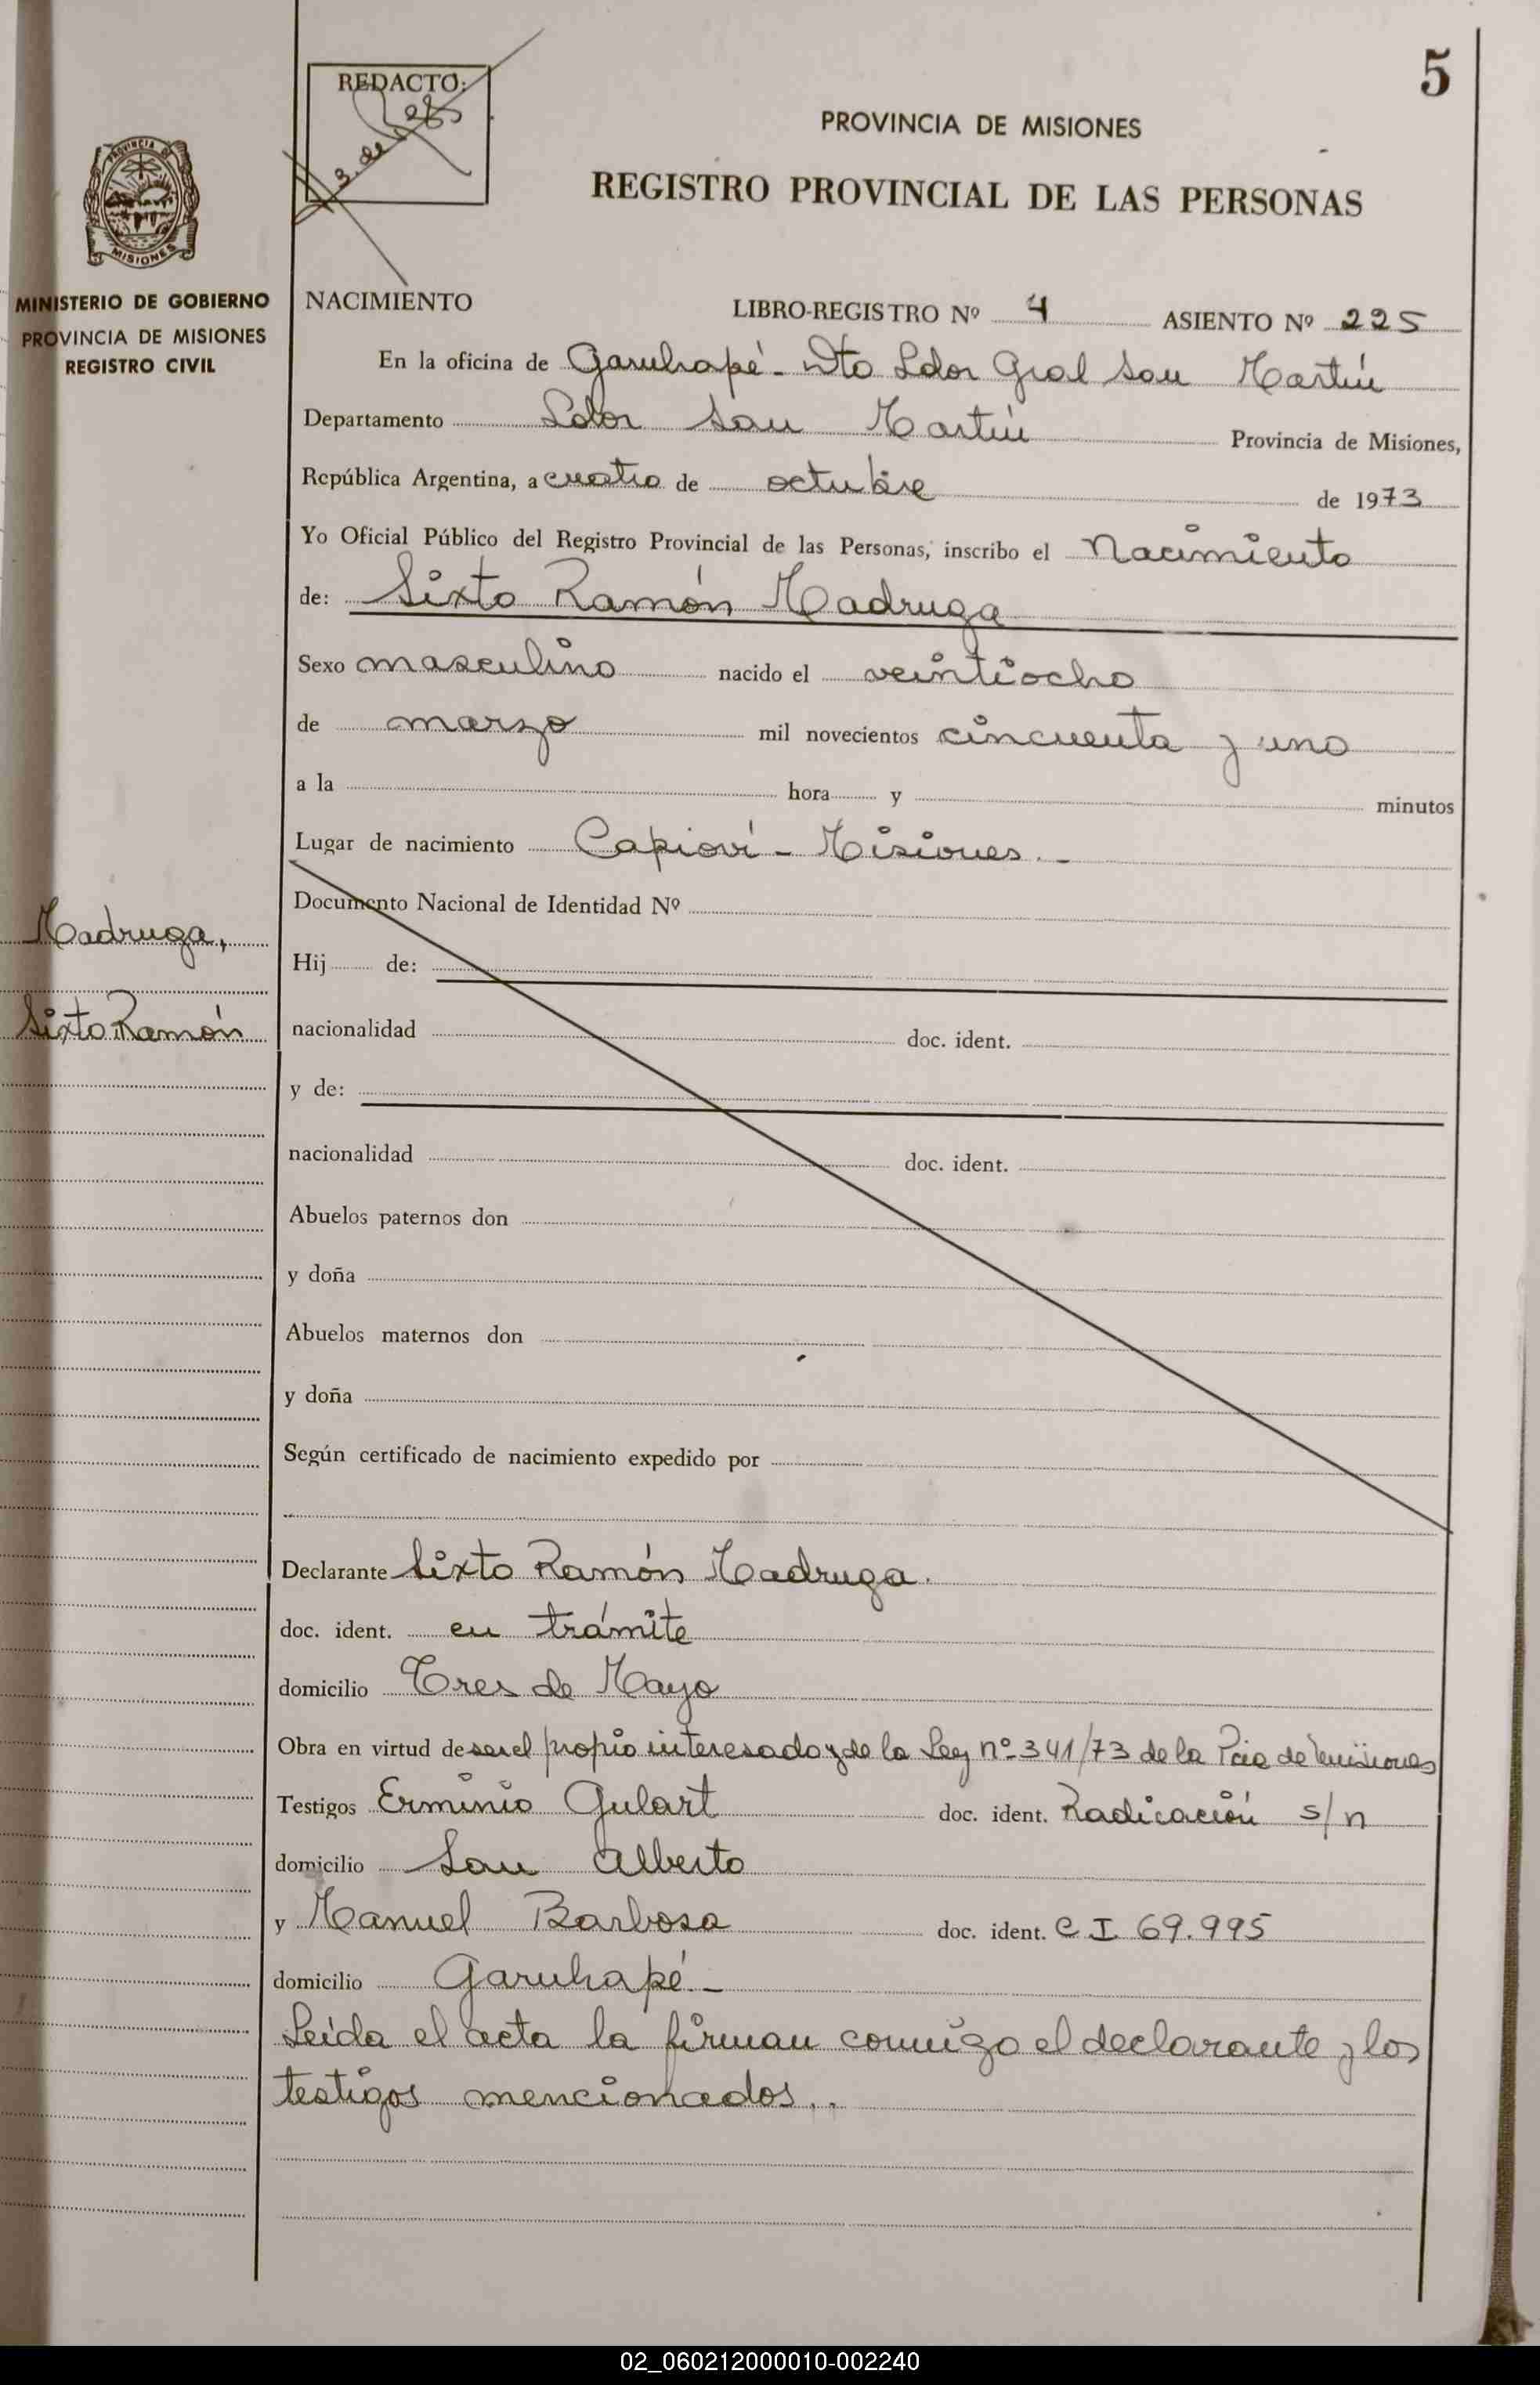 5
REDACTO:
PROVINCIA DE MISIONES
REGISTRO PROVINCIAL DE LAS PERSONAS
PROVINCIA DE
MISIONES
MINISTERIO DE GOBIERNO
PROVINCIA DE MISIONES
REGISTRO CIVIL
NACIMIENTO LIBRO-REGISTRO Nº 4 ASIENTO Nº 225
En la oficina de Garuhapé - Dto Ldor Gral San Martín
Departamento Ldor San Martín Provincia de Misiones,
República Argentina, a cuatro de octubre de 1973
Yo Oficial Público del Registro Provincial de las Personas, inscribo el Nacimiento
de: Sixto Ramón Madruga
Sexo masculino nacido el veintiocho
de marzo mil novecientos cincuenta y uno
a la hora y minutos
Lugar de nacimiento Capioví - Misiones. -
Documento Nacional de Identidad Nº
Madruga,
Hij de:
Sixto Ramón
nacionalidad doc. ident.
y de:
nacionalidad doc. ident.
Abuelos paternos don
y doña
Abuelos maternos don
y doña
Según certificado de nacimiento expedido por
Declarante Sixto Ramón Madruga.
doc. ident. en trámite
domicilio Tres de Mayo
Obra en virtud de ser el propio interesado y de la Ley nº 341/73 de la Pcia de Misiones
Testigos Erminio Gulart doc. ident. Radicación s/n
domicilio San Alberto
y Manuel Barbosa doc. ident. C I 69.995
domicilio Garuhapé -
Leída el acta la firman conmigo el declarante y los
testigos mencionados..
02_060212000010-002240